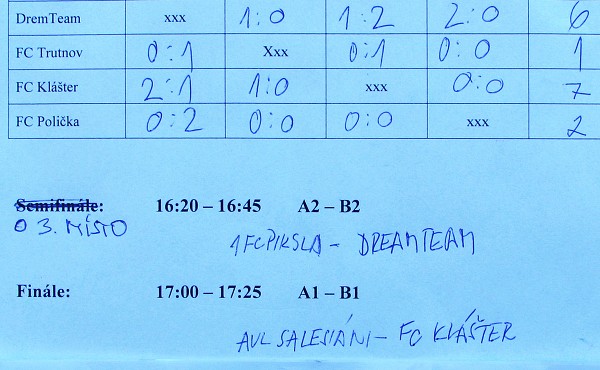 DremTeam xxx 1:0 1:2 2:0 6
FC Trutnov 0:1 Xxx 0:1 0:0 1
FC Klášter 2:1 1:0 xxx 0:0 7
FC Polička 0:2 0:0 0:0 xxx 2
Semifinále: 16:20 – 16:45 A2 – B2
O 3. MÍSTO
1FC PIKSLA – DREAMTEAM
Finále: 17:00 – 17:25 A1 – B1
AVL SALESIÁNI – FC KLÁŠTER